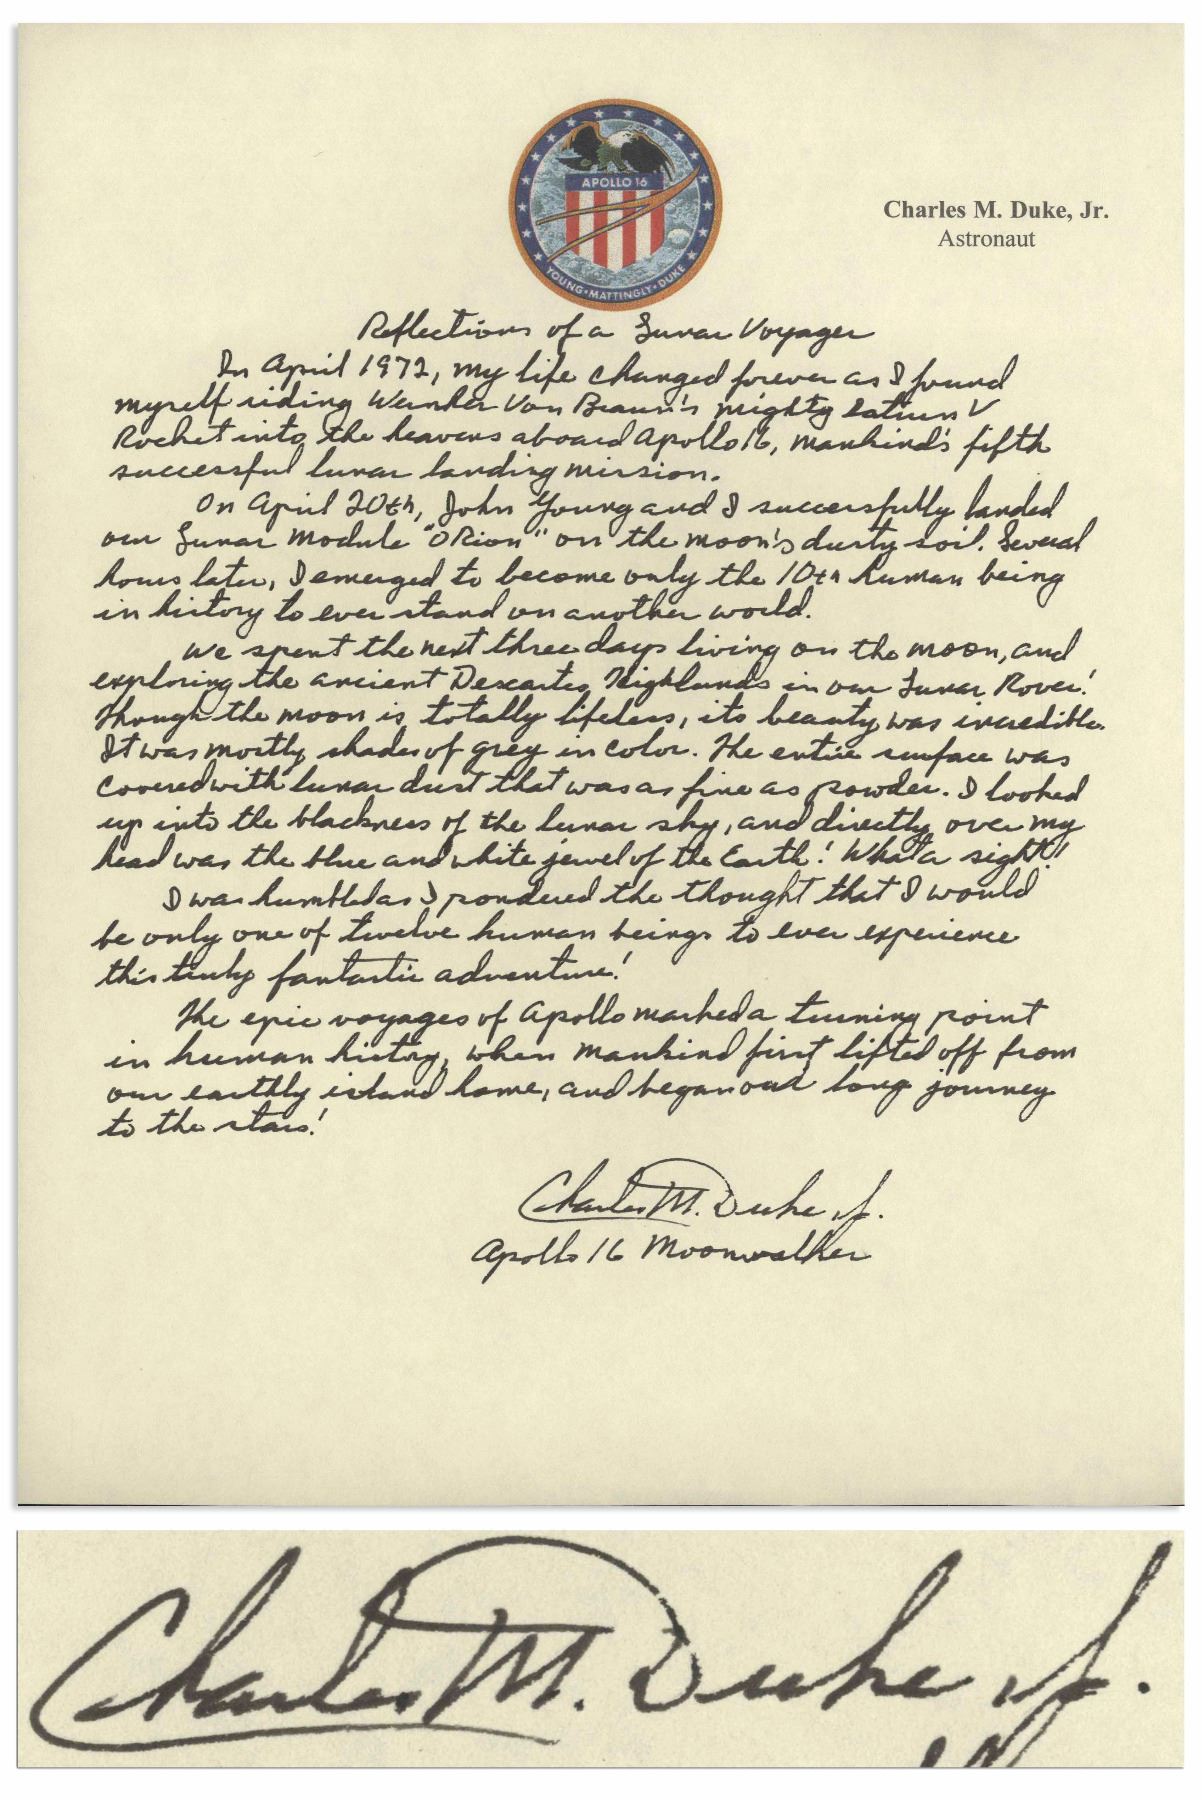 APOLLO 16
YOUNG • MATTINGLY • DUKE
Charles M. Duke, Jr.
Astronaut
Reflections of a Lunar Voyager
In April 1972, my life changed forever as I found
myself riding Wernher Von Braun's mighty Saturn V
Rocket into the heavens aboard Apollo 16, mankind's fifth
successful lunar landing mission.
On April 20th, John Young and I successfully landed
our Lunar Module "ORion" on the moon's dusty soil. Several
hours later, I emerged to become only the 10th human being
in history to ever stand on another world.
We spent the next three days living on the moon, and
exploring the ancient Descartes Highlands in our Lunar Rover!
Though the moon is totally lifeless, its beauty was incredible.
It was mostly shades of grey in color. The entire surface was
covered with lunar dust that was as fine as powder. I looked
up into the blackness of the lunar sky, and directly over my
head was the blue and white jewel of the Earth! What a sight!
I was humbled as I pondered the thought that I would
be only one of twelve human beings to ever experience
this truly fantastic adventure!
The epic voyages of Apollo marked a turning point
in human history, when mankind first lifted off from
our earthly island home, and began our long journey
to the stars!
Charles M. Duke Jr.
Apollo 16 Moonwalker
Charles M. Duke Jr.